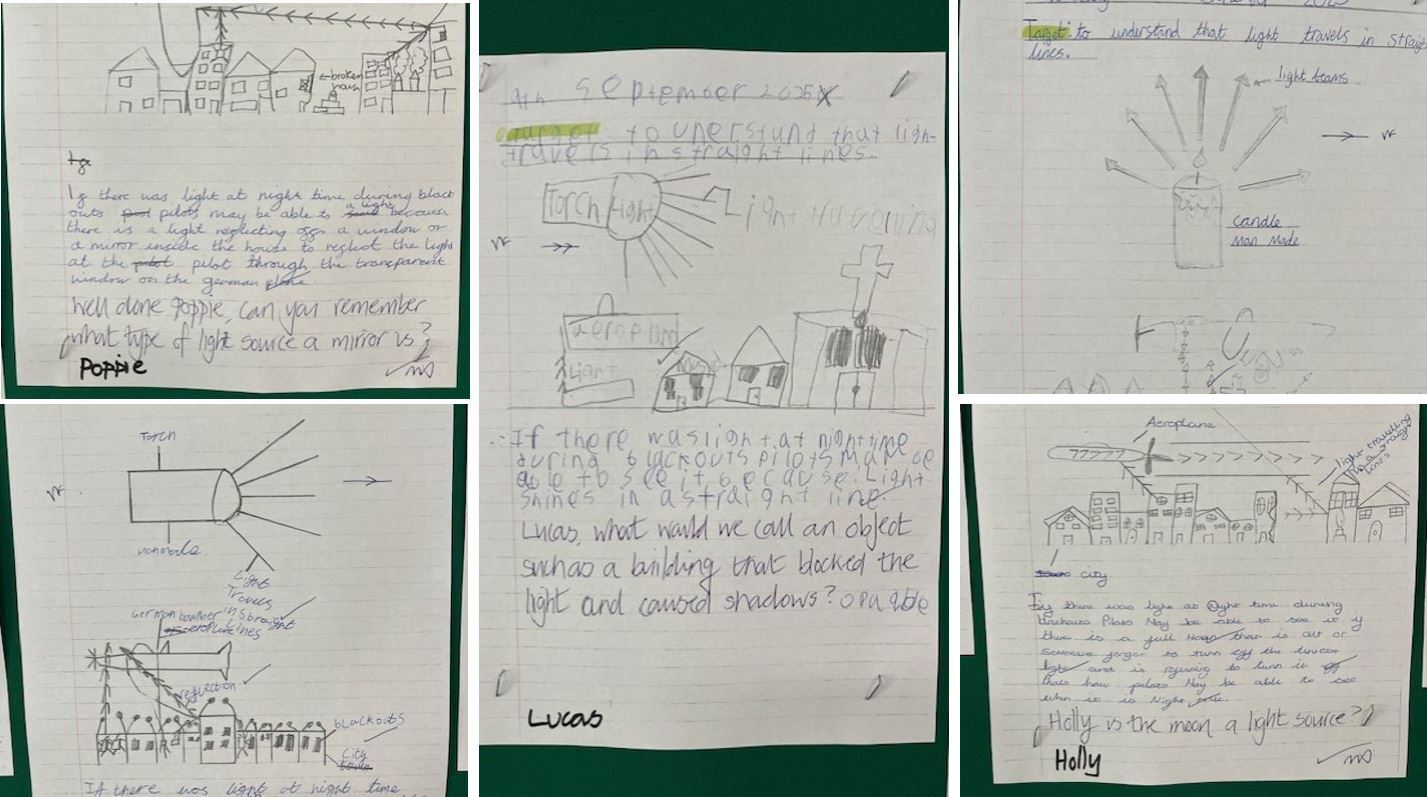 ←broken
house
If there was light at night time during black
outs pilots may be able to a light because
there is a light reflecting off a window or
a mirror inside the house to reflect the light
at the pilot through the transparent
window on the german plane
Well done Poppie, can you remember
what type of light source a mirror is?
Poppie
Torch
manmade
Light
Travels
in straight
lines
German bomber
aeroplane
reflection
blackouts
City
If there was light at night time
9th September 2025
Target: to unerstand that ligh-
travels in straight lines.
Torch
light
Light travelling
aeroplane
Light
If there was light at nighttime
during blackouts pilots may be
able to see it because Light
shines in a straight line.
Lucas, what would we call an object
such as a building that blocked the
light and caused shadows? opaqble
Lucas
2025
Target: to understand that light travels in straigh
lines.
light beams
candle
Man Made
Aeroplane
light travelling
in a straight
lines
city
If there was light at Night time during
blackouts Pilots May be able to see it if
there is a full Moon there is out or
someone forgot to turn off the
light and is refusing to turn it off
thats how pilots May be able to see
when it is Night time.
Holly is the moon a light source?
Holly